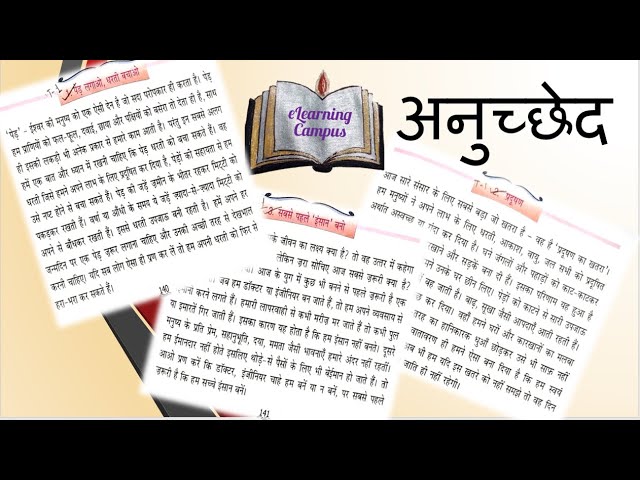 eLearning
Campus
अनुच्छेद
T-1 पेड़ लगाओ, धरती बचाओ
'पेड़' - ईश्वर की मनुष्य को एक ऐसी देन है जो सदा परोपकार ही करता है। पेड़
हम प्राणियों को फल-फूल, दवाई, छाया और पक्षियों को बसेरा तो देता ही है, साथ
ही इसकी लकड़ी भी अनेक प्रकार से हमारे काम आती है। परंतु इन सबसे अलग
हमें एक बात और ध्यान में रखनी चाहिए कि पेड़ धरती को बचा सकते हैं। वह
धरती जिसे हमने अपने लाभ के लिए प्रदूषित कर दिया है, पेड़ों की सहायता से हम
उसे नष्ट होने से बचा सकते हैं। पेड़ की जड़ें ज़मीन के भीतर रहकर मिट्टी को
पकड़कर रखती हैं। वर्षा या आँधी के समय वे जड़ें ज़्यादा-से-ज़्यादा मिट्टी को
अपने से बाँधकर रखती हैं। इससे धरती उपजाऊ बनी रहती है। हमें अपने हर
जन्मदिन पर एक पेड़ ज़रूर लगाना चाहिए और उनकी अच्छी तरह से देखभाल
करनी चाहिए। यदि सब लोग ऐसा ही प्रण कर लें तो हम अपनी धरती को फिर से
हरा-भरा कर सकते हैं।
140
सबसे पहले 'इंसान' बनो
के जीवन का लक्ष्य क्या है? तो वह उत्तर में कहेगा
लेकिन ज़रा सोचिए आज सबसे ज़रूरी क्या है?
आज के युग में कुछ भी बनने से पहले ज़रूरी है एक
जब हम डॉक्टर या इंजीनियर बन जाते हैं, तो हम अपने व्यवसाय से
करने लगते हैं। हमारी लापरवाही से कभी मरीज़ मर जाते हैं तो कभी पुल
या इमारतें गिर जाती हैं। इसका कारण यह होता है कि हम इंसान नहीं बनते। दूसरे
मनुष्य के प्रति प्रेम, सहानुभूति, दया, ममता जैसी भावनाएँ हमारे अंदर नहीं रहतीं।
हम ईमानदार नहीं होते इसलिए थोड़े-से पैसों के लिए भी बेईमान हो जाते हैं। तो
आओ प्रण करें कि डॉक्टर, इंजीनियर चाहे हम बनें या न बनें, पर सबसे पहले
ज़रूरी है कि हम सच्चे इंसान बनें।
141
प्रदूषण
आज सारे संसार के लिए सबसे बड़ा जो खतरा है - वह है 'प्रदूषण का खतरा'।
हम मनुष्यों ने अपने लाभ के लिए धरती, आकाश, वायु, जल सभी को प्रदूषित
अर्थात अस्वच्छ कर दिया है। घने जंगलों और पहाड़ों को काट-काटकर
उनके घर छीन लिए। पेड़ों को काटने से सारी उपजाऊ
गई। इसका परिणाम यह हुआ है
बाढ़, सूखा जैसी आपदाएँ आती रहती हैं।
कर दिया। वहाँ हमने घरों और कारखानों का मलबा
तरह का हानिकारक धुआँ छोड़कर उसे भी साफ़ नहीं
वातावरण ही हमने ऐसा बना दिया है कि हम स्वयं
अब भी हम यदि इस खतरे को नहीं समझे तो वह दिन
जाति ही नहीं रहेगी।